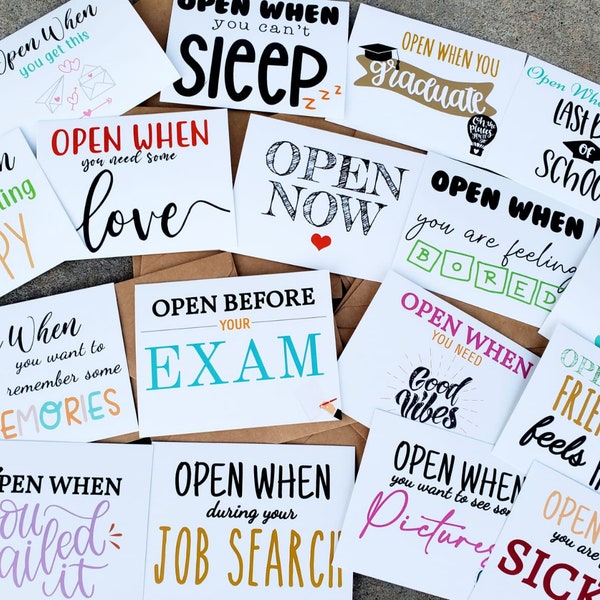 Open When
you get this
OPEN WHEN
you can't
SLEEP
zzz
OPEN WHEN YOU
graduate
Oh the places you'll go
Open When
LAST DAY
of
SCHOOL
OPEN WHEN
you need some
love
OPEN
NOW
OPEN WHEN
you are feeling
BORED
When
you want to
remember some
MEMORIES
OPEN BEFORE
YOUR
EXAM
OPEN WHEN
YOU NEED
Good
Vibes
OPEN
FRIEN
feels
OPEN WHEN
you nailed
it
OPEN WHEN
during your
JOB SEARCH
OPEN WHEN
you want to see some
Pictures
OPEN
you are
SICK